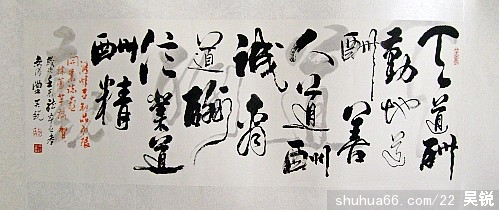 天道酬
勤地道
酬善
人道酬
诚商
道酬
信業道
酬精
shuhua66.com/22 吴锐